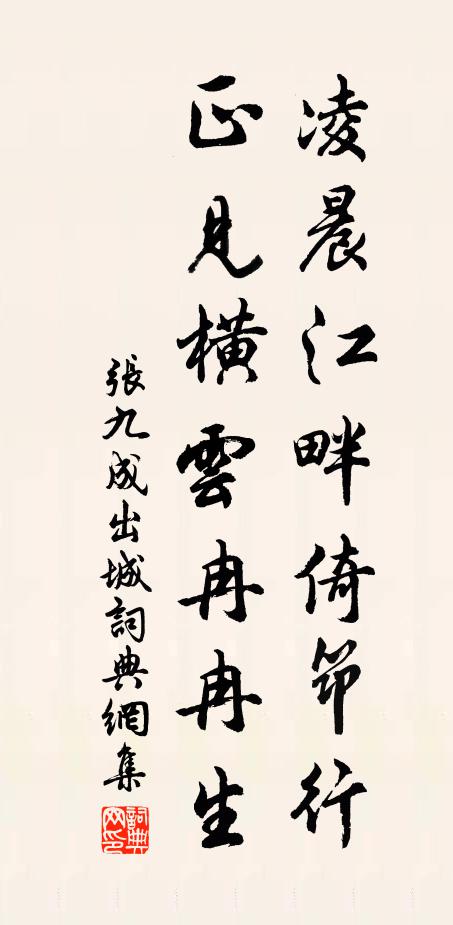 凌晨江畔倚筇行
正見橫雲冉冉生
張九成出城詞典網集
詞典网印